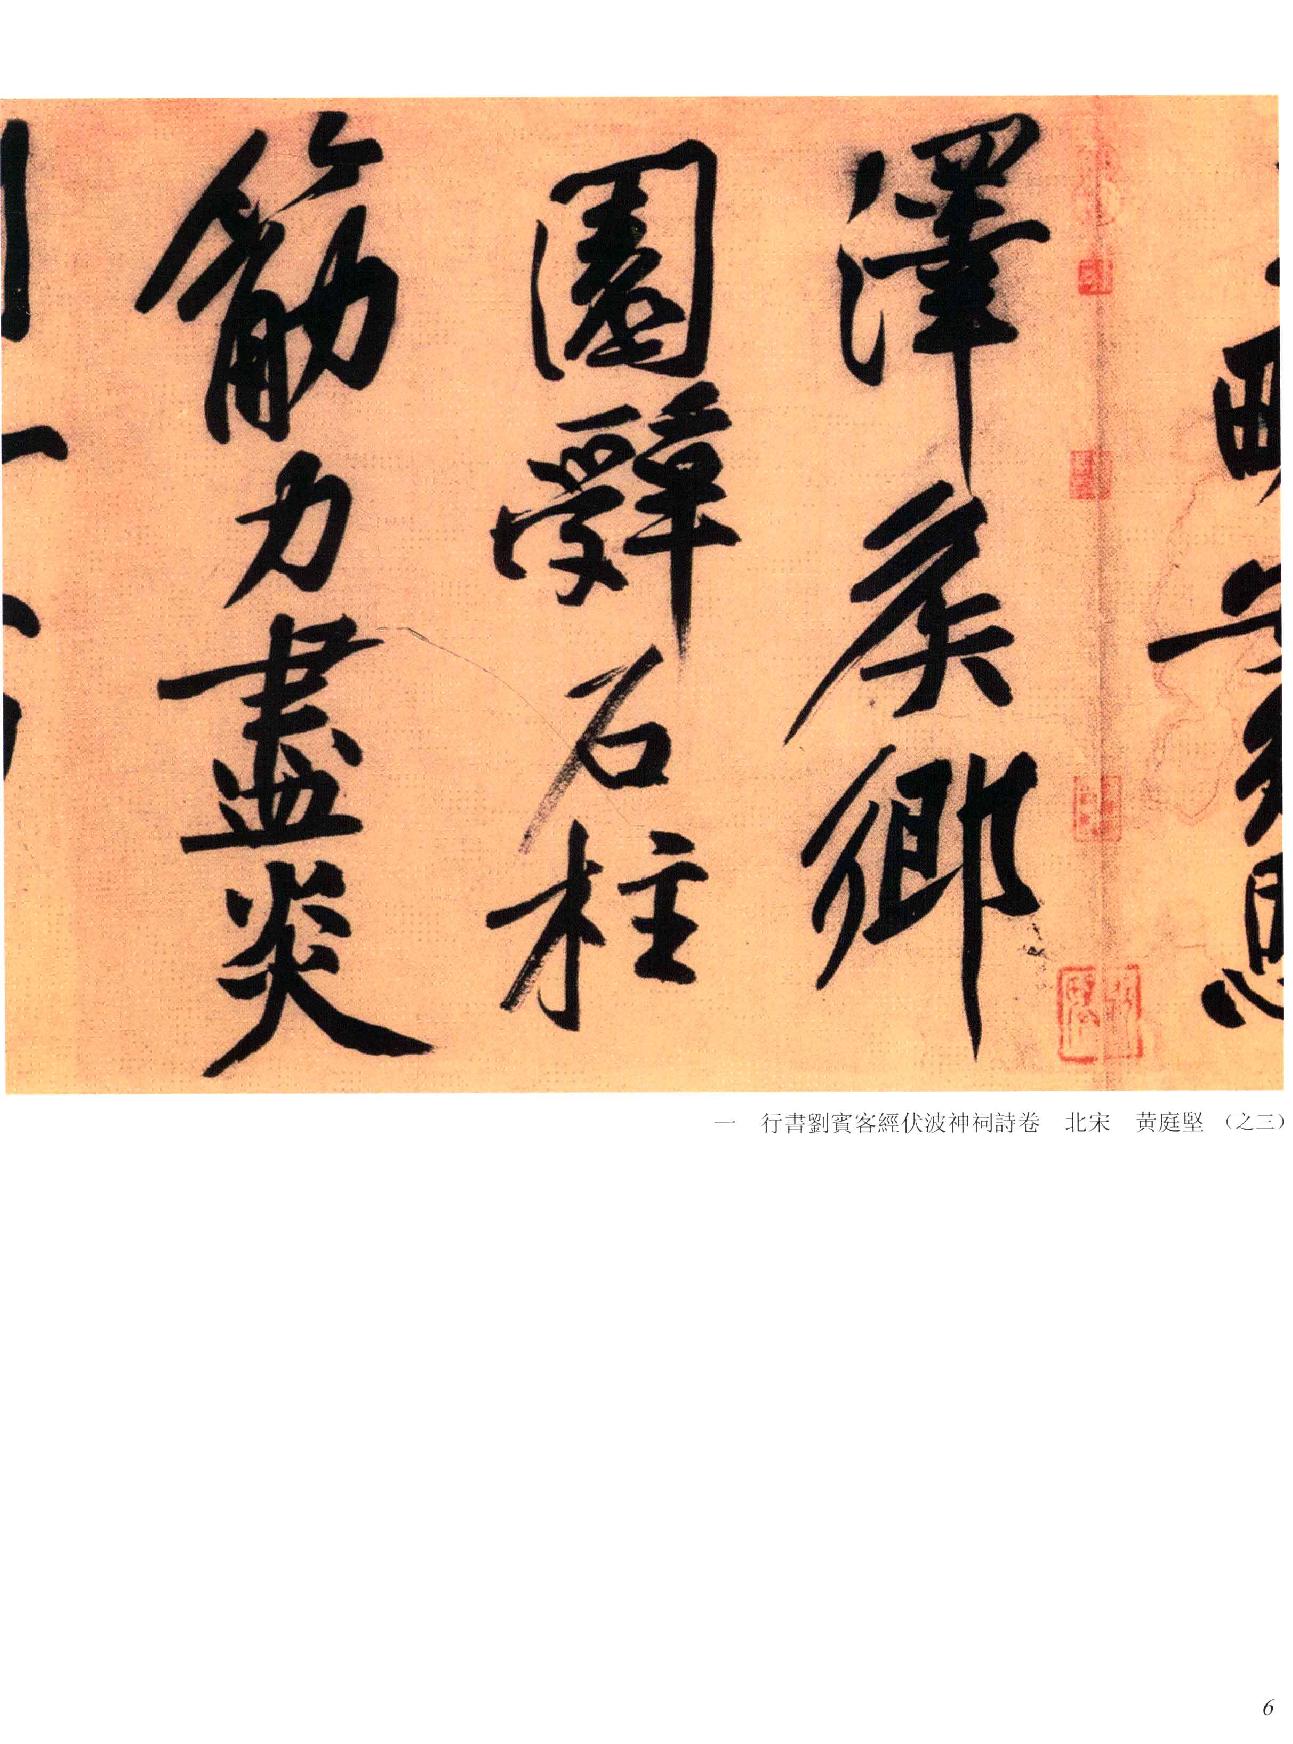 澤矦鄉
園辭石柱
筋力盡炎
一　行書劉賓客經伏波神祠詩卷　北宋　黃庭堅（之三）
6